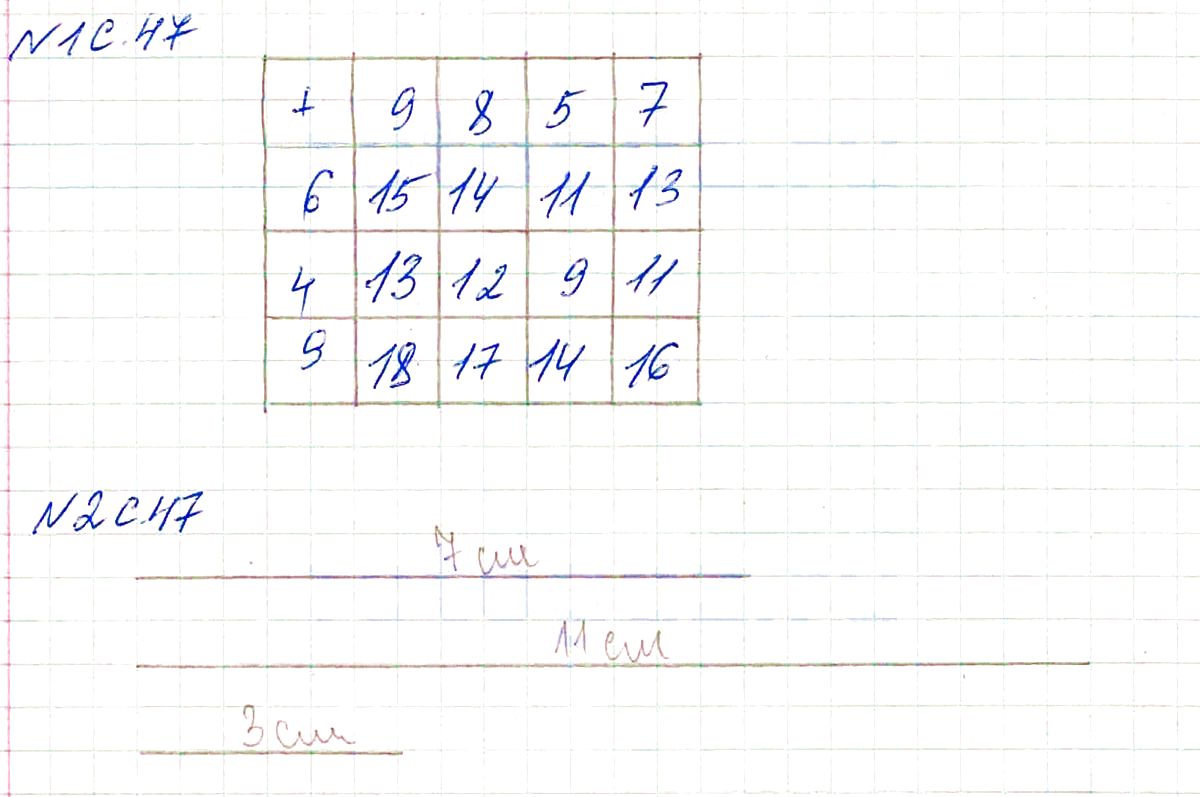 N1 с.47
+ 9 8 5 7
6 15 14 11 13
4 13 12 9 11
9 18 17 14 16
N2 с.47
7 см
11 см
3 см